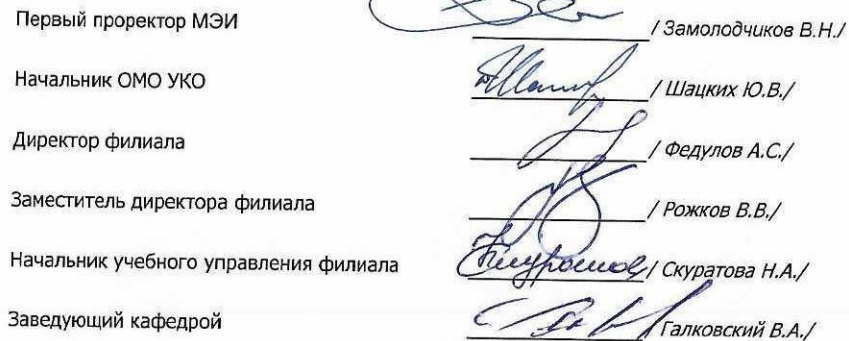 Первый проректор МЭИ / Замолодчиков В.Н./
Начальник ОМО УКО / Шацких Ю.В./
Директор филиала / Федулов А.С./
Заместитель директора филиала / Рожков В.В./
Начальник учебного управления филиала / Скуратова Н.А./
Заведующий кафедрой / Галковский В.А./